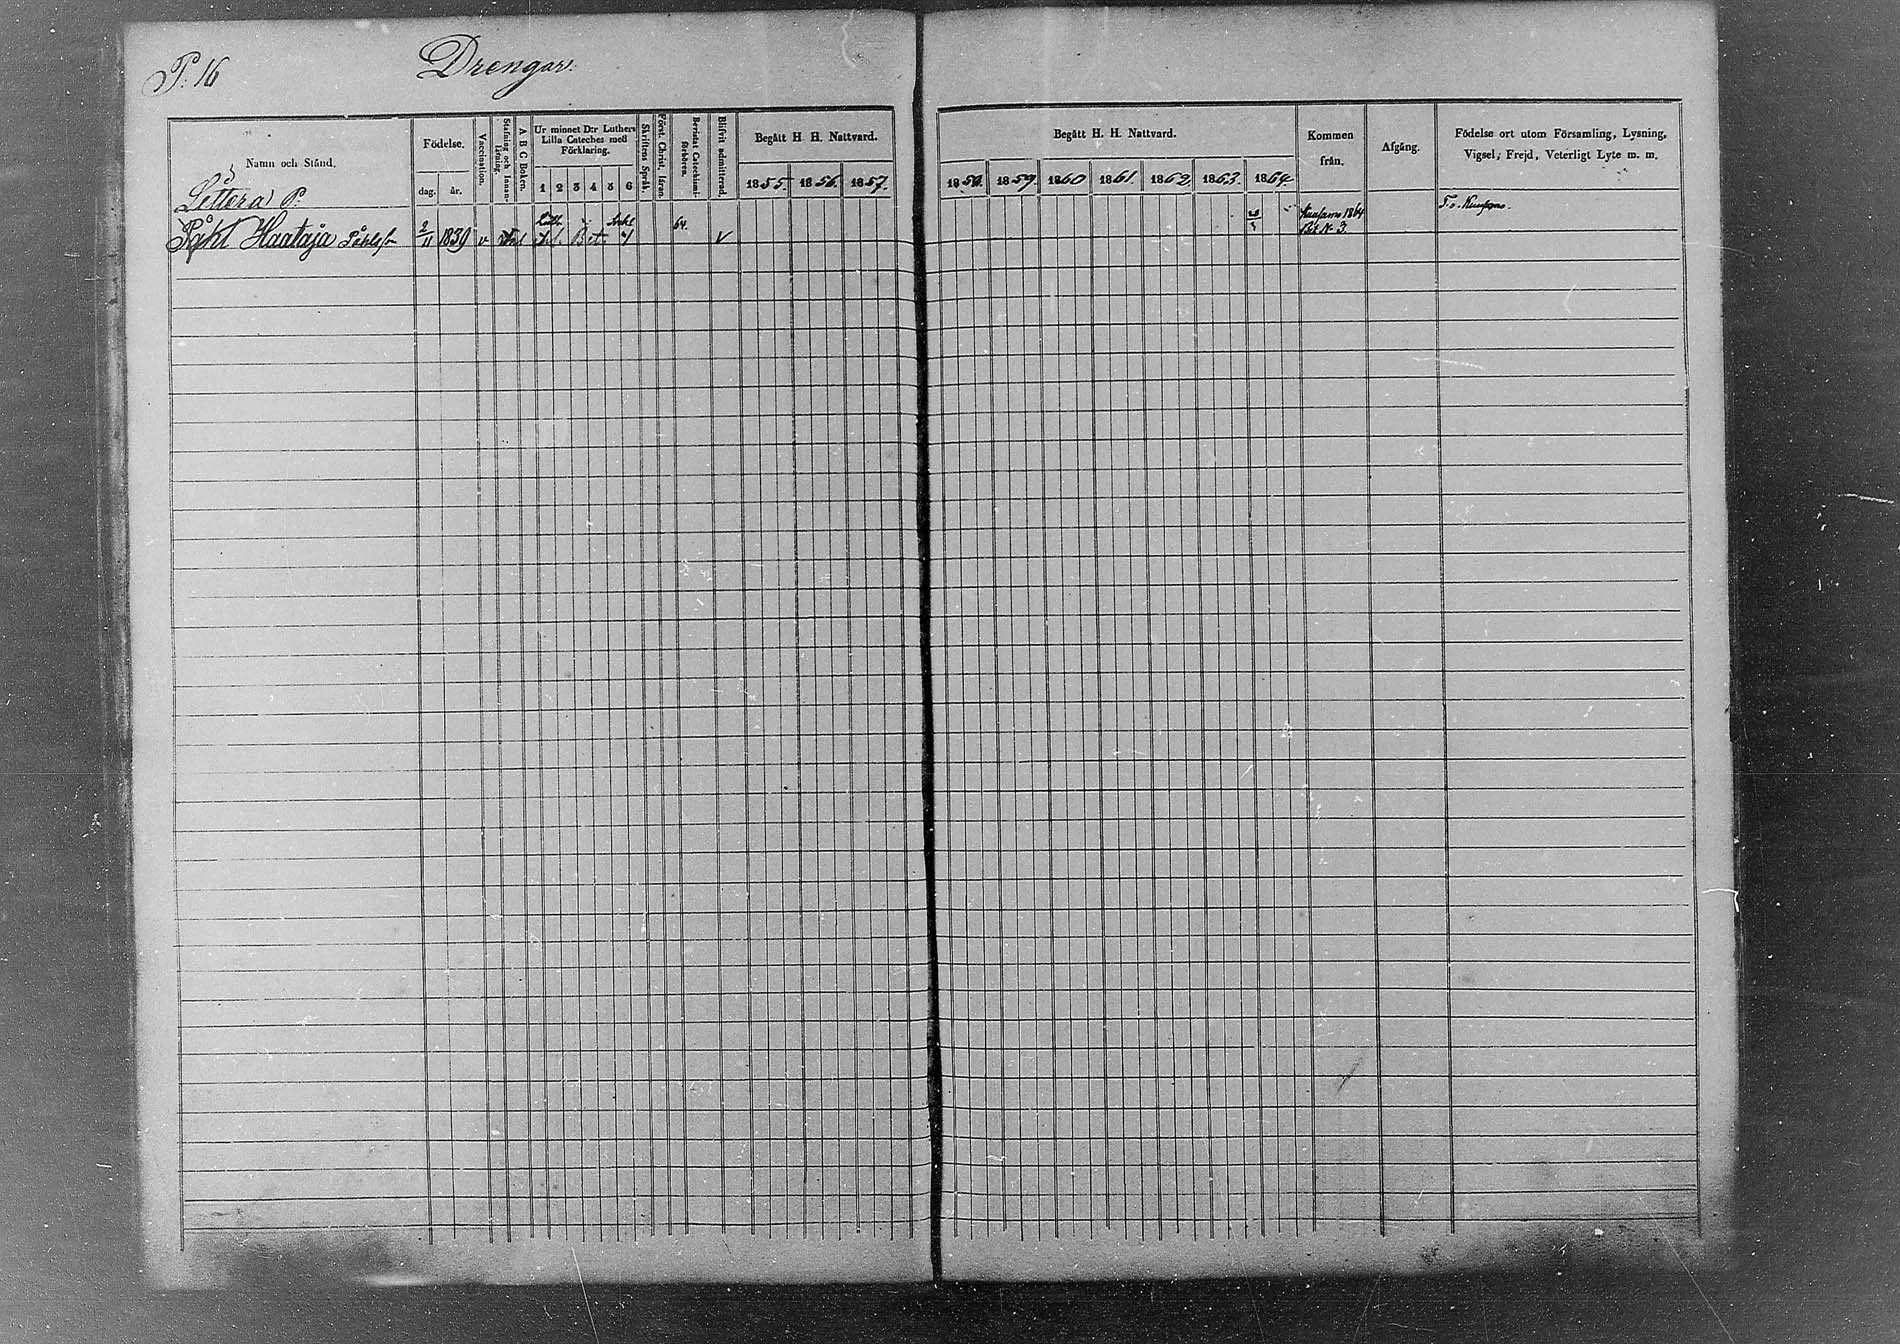 P. 16
Drengar.
Namn och Stånd.
Födelse.
dag.
år.
Vaccination.
Stafning och Innan-
läsning.
A B C Boken.
Ur minnet D:r Luthers
Lilla Cateches med
Förklaring.
1 2 3 4 5 6
Skriftens Språk.
Först. Christ. läran.
Bevistat Catechismi-
förhören.
Blifvit admitterad.
Begått H. H. Nattvard.
1855. 1856. 1857.
Littera P.
Påhl Haataja Påhlsson
2/11 1839 v
64.
v
Begått H. H. Nattvard.
1858. 1859. 1860 1861. 1862. 1863. 1864.
Kommen
från.
Afgång.
Födelse ort utom Församling, Lysning,
Vigsel, Frejd, Veterligt Lyte m. m.
1864
N. 3.